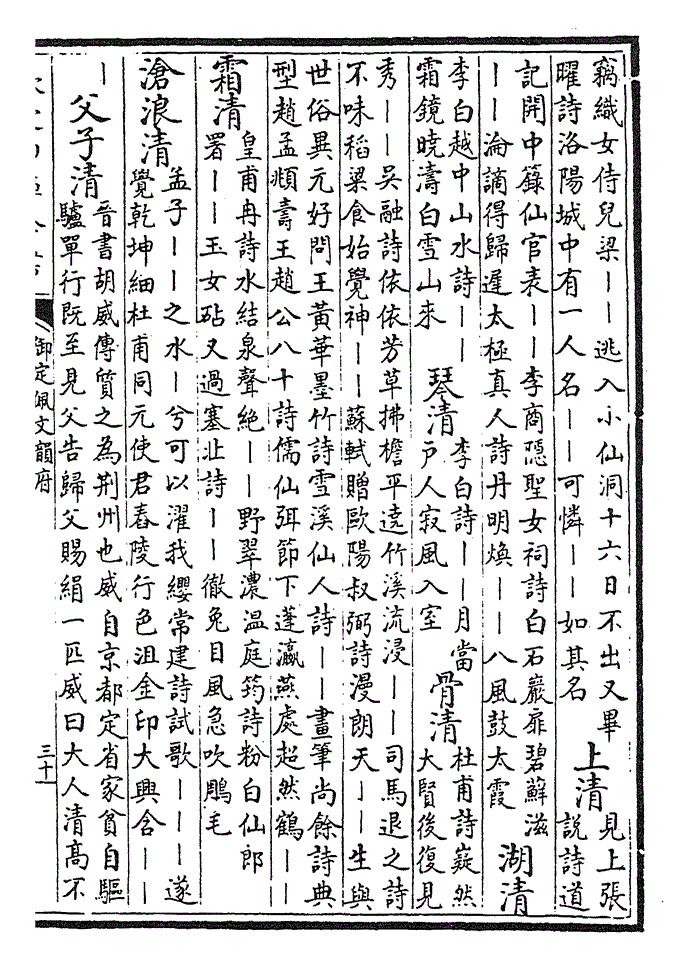 竊織女侍兒梁——逃入小仙洞十六日不出又畢
曜詩洛陽城中有一人名——可憐——如其名
上清
見上張
說詩道
記開中籙仙官表——李商隱聖女祠詩白石巖扉碧蘚滋
——淪謫得歸遲太極真人詩丹明煥——八風鼓太霞
湖清
李白越中山水詩——
霜鏡曉濤白雪山來
琴清
李白詩——月當
戶人寂風入室
骨清
杜甫詩嶷然
大賢後復見
秀——吳融詩依依芳草拂檐平遶竹溪流浸——司馬退之詩
不味稻粱食始覺神——蘇軾贈歐陽叔弼詩漫朗天——生與
世俗異元好問王黃華墨竹詩雪溪仙人詩——畫筆尚餘詩典
型趙孟頫壽王趙公八十詩儒仙弭節下蓬瀛燕處超然鶴——
霜清
皇甫冉詩水結泉聲絕——野翠濃溫庭筠詩粉白仙郎
署——玉女砧又過塞北詩——徹兔目風急吹鵰毛
滄浪清
孟子——之水—兮可以濯我纓常建詩試歌———遂
覺乾坤細杜甫同元使君舂陵行色沮金印大興含——
—
父子清
晉書胡威傳質之為荊州也威自京都定省家貧自驅
驢單行既至見父告歸父賜絹一匹威曰大人清高不
御定佩文韻府
三十